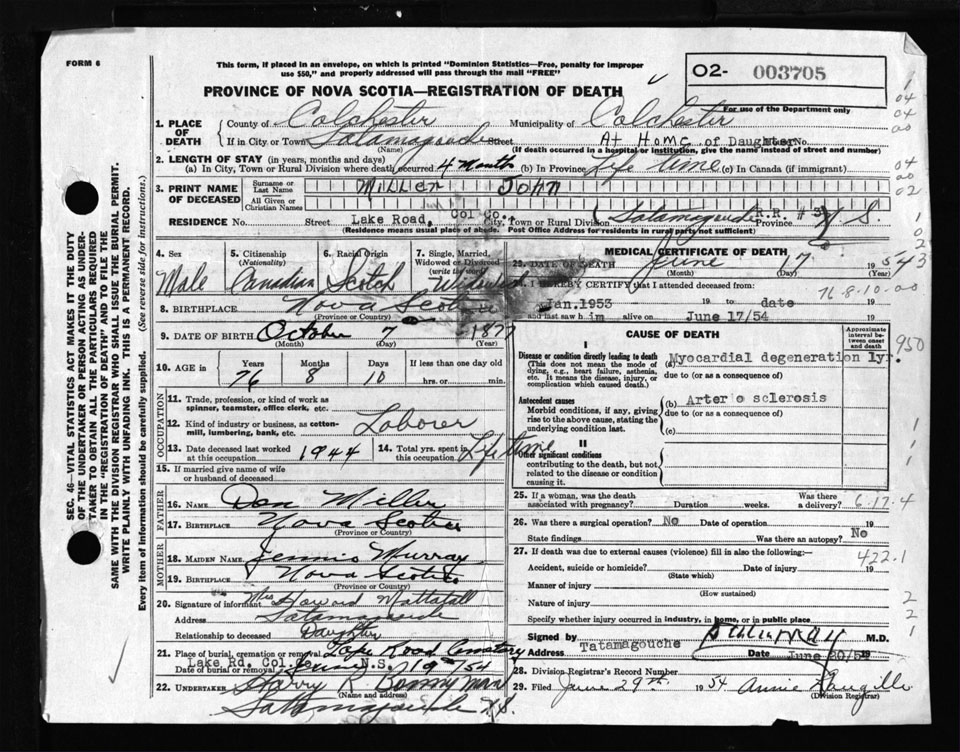 FORM 6
This form, if placed in an envelope, on which is printed "Dominion Statistics—Free, penalty for improper
use $50," and properly addressed will pass through the mail "FREE"
02- 003705
PROVINCE OF NOVA SCOTIA—REGISTRATION OF DEATH
For use of the Department only
1. PLACE OF DEATH County of Colchester Municipality of Colchester
If in City or Town Tatamagouche Street At Home of Daughter No.
(Name) (If death occurred in a hospital or institution, give the name instead of street and number)
2. LENGTH OF STAY (in years, months and days)
(a) In City, Town or Rural Division where death occurred 4 Months (b) In Province Life time (c) In Canada (if immigrant)
3. PRINT NAME OF DECEASED Surname or Last Name Miller John
All Given or Christian Names
RESIDENCE No. Street Lake Road, Col Co. City, Town or Rural Division Tatamagouche R.R. # 3 Province N.S.
(Residence means usual place of abode. Post Office Address for residents in rural parts not sufficient)
4. Sex Male
5. Citizenship (Nationality) Canadian
6. Racial Origin Scotch
7. Single, Married, Widowed or Divorced (write the word) Widowed
8. BIRTHPLACE Nova Scotia
(Province or Country)
9. DATE OF BIRTH October 7 1877
(Month) (Day) (Year)
10. AGE in Years Months Days If less than one day old
76 8 10 hrs. or min.
OCCUPATION
11. Trade, profession, or kind of work as spinner, teamster, office clerk, etc.
12. Kind of industry or business, as cotton-mill, lumbering, bank, etc. Laborer
13. Date deceased last worked at this occupation 1944
14. Total yrs. spent in this occupation Life time
15. If married give name of wife or husband of deceased
FATHER
16. NAME Dan Miller
17. BIRTHPLACE Nova Scotia
(Province or Country)
MOTHER
18. MAIDEN NAME Jennie Murray
19. BIRTHPLACE Nova Scotia
(Province or Country)
20. Signature of informant Mrs Howard Mattatall
Address Tatamagouche
Relationship to deceased Daughter
21. Place of burial, cremation or removal Lake Road Cemetery
Lake Rd. Col. Co. N.S.
Date of burial or removal June 19 1954
22. UNDERTAKER Harry R. Bonnyman
(Name and address)
Tatamagouche N.S.
MEDICAL CERTIFICATE OF DEATH
23. DATE OF DEATH June 17 1954
(Month) (Day)
24. I HEREBY CERTIFY that I attended deceased from:
Jan.1953 19 to date 19
and last saw him alive on June 17/54
76-8-10-00
CAUSE OF DEATH
Approximate interval between onset and death
I
Disease or condition directly leading to death
(This does not mean the mode of dying, e.g., heart failure, asthenia, etc. It means the disease, injury, or complication which caused death.)
(a) Myocardial degeneration 1yr.
due to (or as a consequence of)
Antecedent causes
Morbid conditions, if any, giving rise to the above cause, stating the underlying condition last.
(b) Arter o sclerosis
due to (or as a consequence of)
(c)
II
Other significant conditions
contributing to the death, but not related to the disease or condition causing it.
25. If a woman, was the death associated with pregnancy? Duration weeks. Was there a delivery?
26. Was there a surgical operation? No Date of operation 19
State findings Was there an autopsy? No
27. If death was due to external causes (violence) fill in also the following:—
Accident, suicide or homicide? Date of injury 19
(State which)
Manner of injury
(How sustained)
Nature of injury
Specify whether injury occurred in industry, in home, or in public place
Signed by M.D.
Address Tatamagouche Date June 20/54 19
28. Division Registrar's Record Number
29. Filed June 29th 1954 Annie
(Division Registrar)
950
6-17-4
422.1
SEC. 46—VITAL STATISTICS ACT MAKES IT THE DUTY
OF THE UNDERTAKER OR PERSON ACTING AS UNDER-
TAKER TO OBTAIN ALL THE PARTICULARS REQUIRED
IN THE "REGISTRATION OF DEATH" AND TO FILE THE
SAME WITH THE DIVISION REGISTRAR WHO SHALL ISSUE THE BURIAL PERMIT.
WRITE PLAINLY WITH UNFADING INK. THIS IS A PERMANENT RECORD.
Every item of information should be carefully supplied. (See reverse side for instructions.)